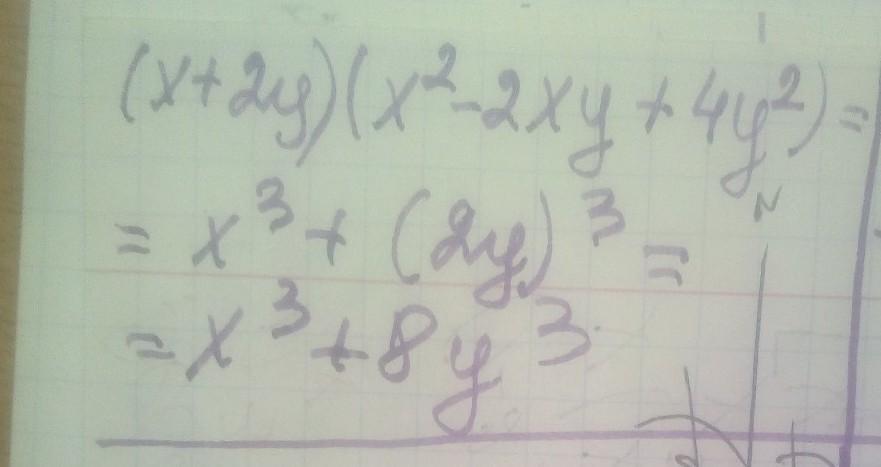 (x+2y)(x²-2xy+4y²)=
=x³+(2y)³=
=x³+8y³